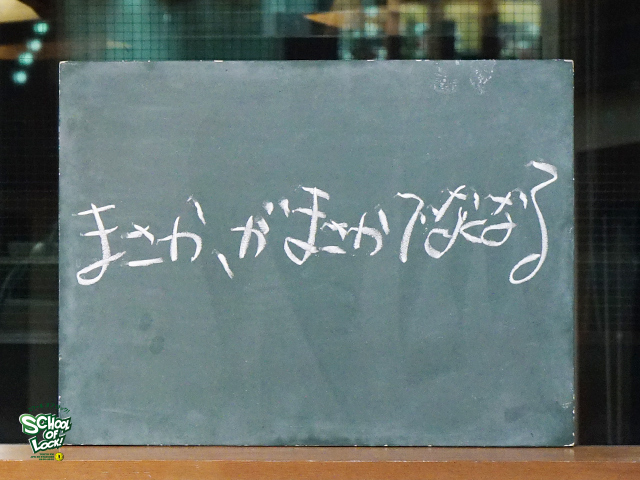 まさか、がまさかでなくなる
SCHOOL
OF
LOCK!